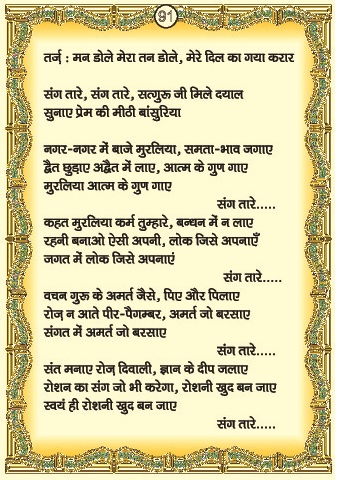 91
तर्ज़ : मन डोले मेरा तन डोले, मेरे दिल का गया करार
संग तारे, संग तारे, सत्गुरू जी मिले दयाल
सुनाए प्रेम की मीठी बांसुरिया
नगर-नगर में बाजे मुरलिया, समता-भाव जगाए
द्वैत छुड़ाए अद्वैत में लाए, आत्म के गुण गाए
मुरलिया आत्म के गुण गाए
संग तारे.....
कहत मुरलिया कर्म तुम्हारे, बन्धन में न लाए
रहनी बनाओ ऐसी अपनी, लोक जिसे अपनाएँ
जगत में लोक जिसे अपनाएं
संग तारे.....
वचन गुरू के अमर्त जैसे, पिए और पिलाए
रोज़ न आते पीर-पैगम्बर, अमर्त जो बरसाए
संगत में अमर्त जो बरसाए
संग तारे.....
संत मनाए रोज़ दिवाली, ज्ञान के दीप जलाए
रोशन का संग जो भी करेगा, रोशनी खुद बन जाए
स्वयं ही रोशनी खुद बन जाए
संग तारे.....